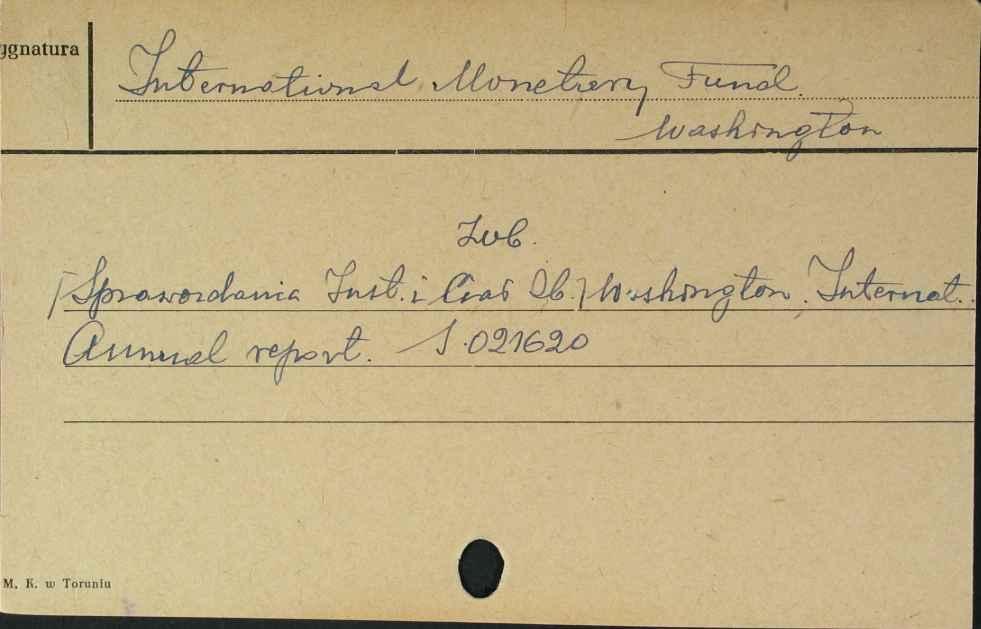 ygnatura
International Monetary Fund.
Washington
Zob.
/Sprawozdania Inst. i Czas Ob./ Washington. Internat.
Annual report. S.021620
M. K. w Toruniu